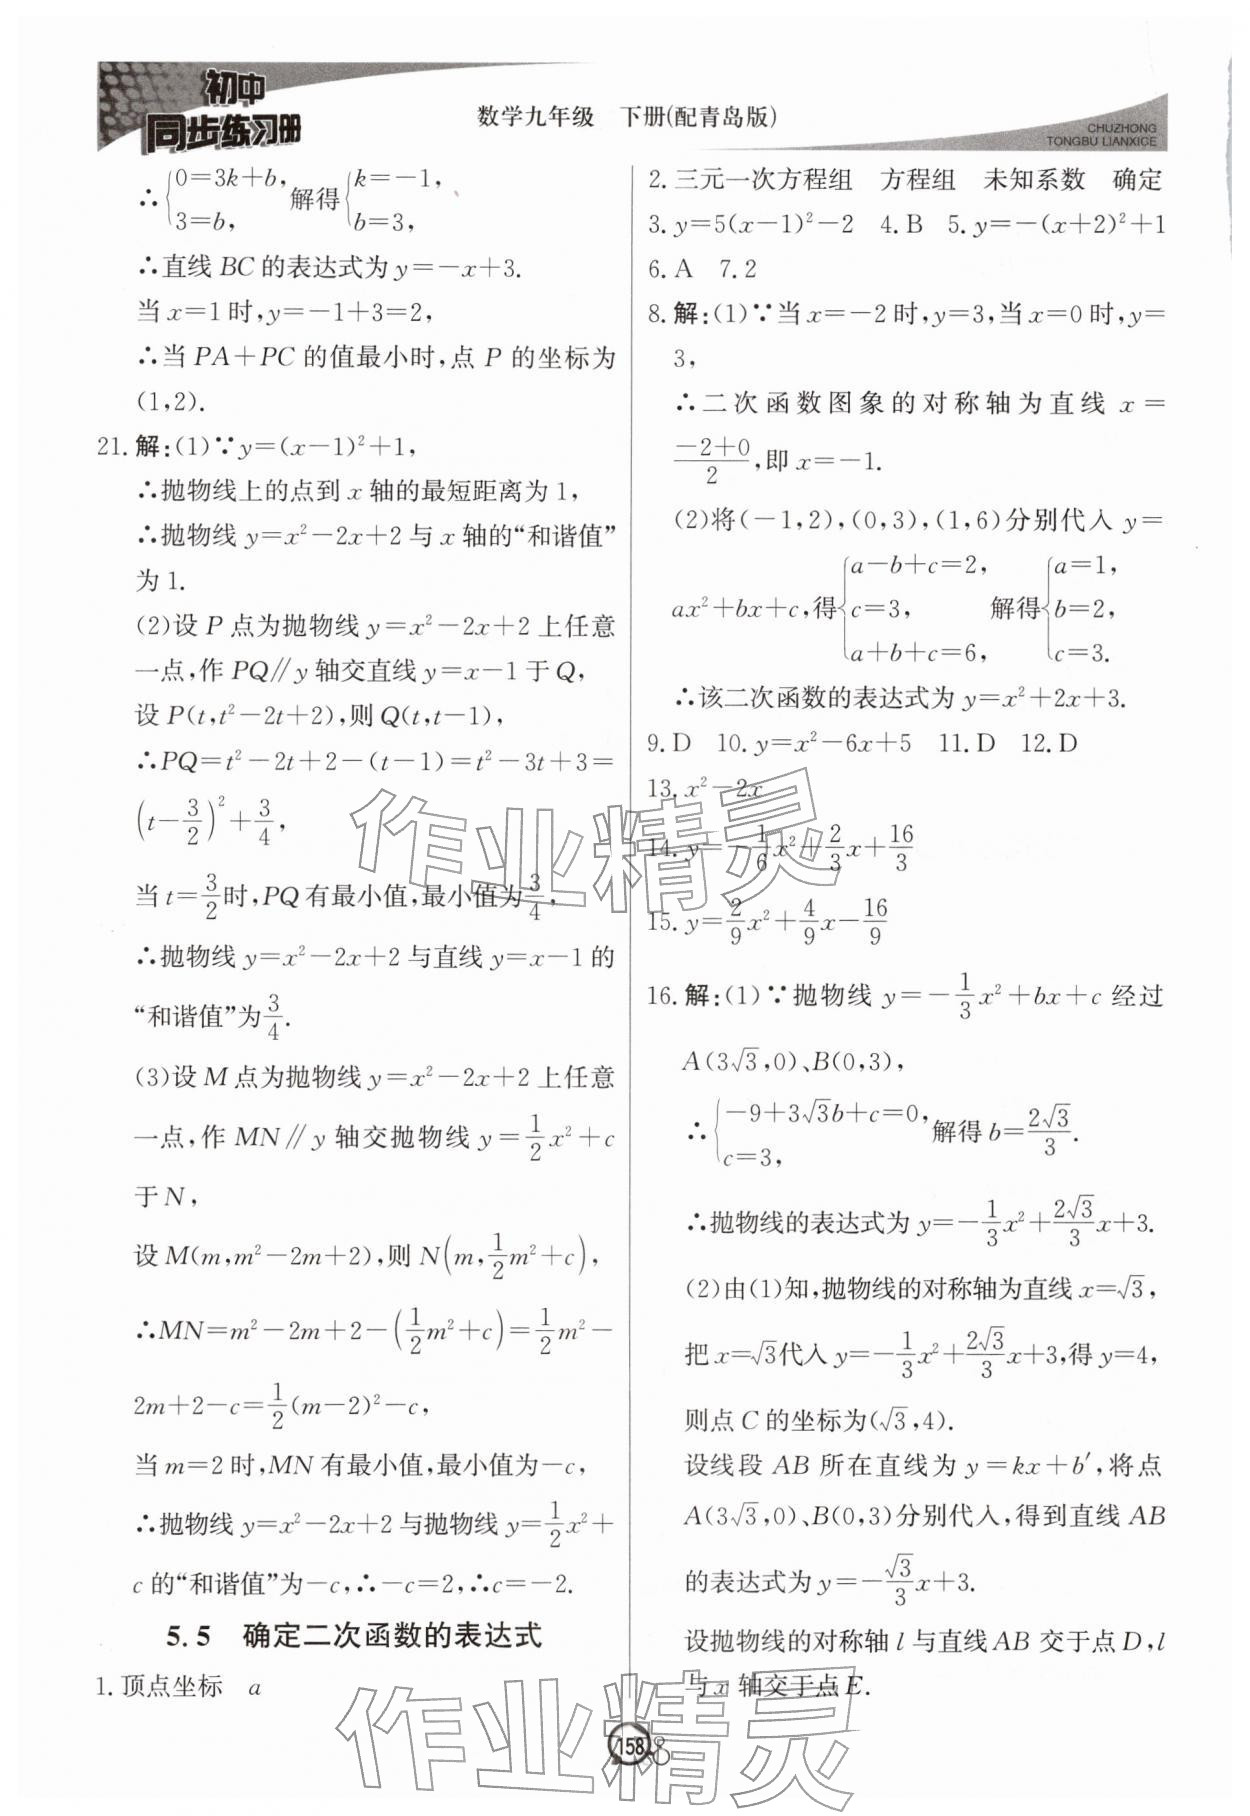 初中
同步练习册
数学九年级 下册(配青岛版)
CHUZHONG
TONGBU LIANXICE
∴{0=3k+b, 3=b, 解得{k=-1, b=3,
∴直线 BC 的表达式为 y=-x+3.
当 x=1 时,y=-1+3=2,
∴当 PA+PC 的值最小时,点 P 的坐标为
(1,2).
21. 解:(1)∵y=(x-1)²+1,
∴抛物线上的点到 x 轴的最短距离为 1,
∴抛物线 y=x²-2x+2 与 x 轴的“和谐值”
为 1.
(2)设 P 点为抛物线 y=x²-2x+2 上任意
一点,作 PQ∥y 轴交直线 y=x-1 于 Q,
设 P(t,t²-2t+2),则 Q(t,t-1),
∴PQ=t²-2t+2-(t-1)=t²-3t+3=
(t-3/2)²+3/4,
当 t=3/2时,PQ 有最小值,最小值为3/4,
∴抛物线 y=x²-2x+2 与直线 y=x-1 的
“和谐值”为3/4.
(3)设 M 点为抛物线 y=x²-2x+2 上任意
一点,作 MN∥y 轴交抛物线 y=1/2x²+c
于 N,
设 M(m,m²-2m+2),则 N(m,1/2m²+c),
∴MN=m²-2m+2-(1/2m²+c)=1/2m²-
2m+2-c=1/2(m-2)²-c,
当 m=2 时,MN 有最小值,最小值为-c,
∴抛物线 y=x²-2x+2 与抛物线 y=1/2x²+
c 的“和谐值”为-c,∴-c=2,∴c=-2.
5.5 确定二次函数的表达式
1. 顶点坐标 a
2. 三元一次方程组 方程组 未知系数 确定
3. y=5(x-1)²-2 4. B 5. y=-(x+2)²+1
6. A 7. 2
8. 解:(1)∵当 x=-2 时,y=3,当 x=0 时,y=
3,
∴二次函数图象的对称轴为直线 x=
(-2+0)/2,即 x=-1.
(2)将(-1,2),(0,3),(1,6)分别代入 y=
ax²+bx+c,得{a-b+c=2, c=3, a+b+c=6, 解得{a=1, b=2, c=3.
∴该二次函数的表达式为 y=x²+2x+3.
9. D 10. y=x²-6x+5 11. D 12. D
13. x²-2x
14. y=-1/6x²+2/3x+16/3
15. y=2/9x²+4/9x-16/9
16. 解:(1)∵抛物线 y=-1/3x²+bx+c 经过
A(3√3,0)、B(0,3),
∴{-9+3√3b+c=0, c=3, 解得 b=2√3/3.
∴抛物线的表达式为 y=-1/3x²+2√3/3x+3.
(2)由(1)知,抛物线的对称轴为直线 x=√3,
把 x=√3代入 y=-1/3x²+2√3/3x+3,得 y=4,
则点 C 的坐标为(√3,4).
设线段 AB 所在直线为 y=kx+b′,将点
A(3√3,0)、B(0,3)分别代入,得到直线 AB
的表达式为 y=-√3/3x+3.
设抛物线的对称轴 l 与直线 AB 交于点 D,l
与 x 轴交于点 E.
158
作业精灵
作业精灵